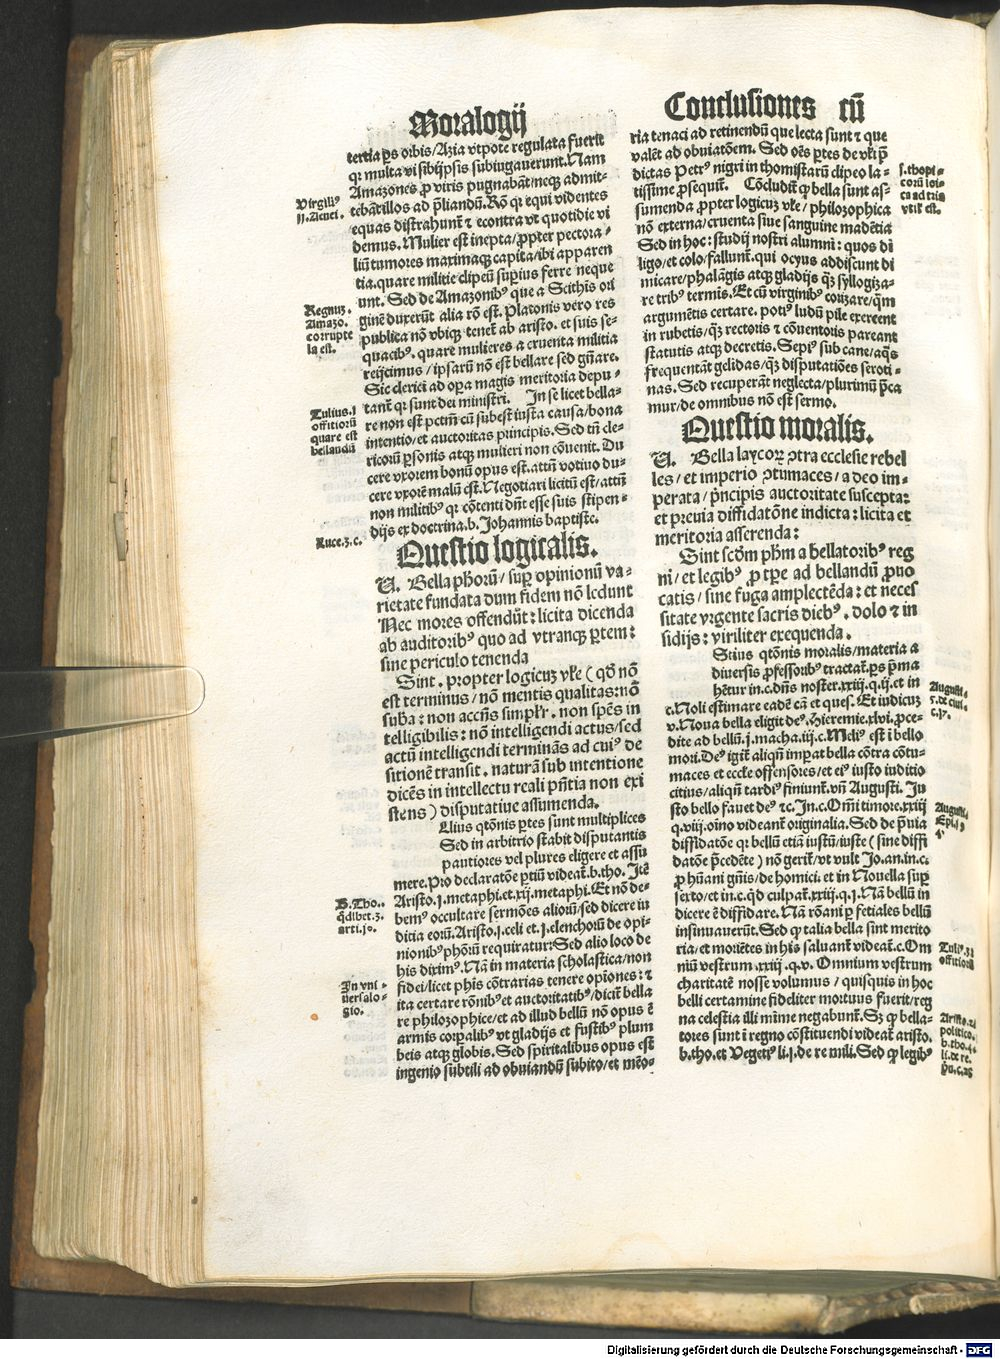 Moralogij
tertia ps orbis/Azia vtpote regulata fuerit
qr multa vi sibijpsis subiugauerunt. Nam
Amazones ꝓ viris pugnabāt/neqꝫ admit-
tebāt illos ad p̄liandū. Rō qr equi videntes
equas distrahunt̄ ⁊ econtra vt quotidie vi
demus. Mulier est inepta/ꝓpter pectora-
liū tumores maximaqꝫ capita/ibi apparen
tia. quare militie clipeū supius ferre neque
unt. Sed de Amazonibꝰ que a Scithis ori
ginē duxerūt alia rō est. Platonis vero res
publica nō vbiqꝫ tenet̄ ab aristo. et suis se-
quacibꝰ. quare mulieres a cruenta militia
reijcimus/ipsarū nō est bellare sed gn̄are.
Sic clerici ad opa magis meritoria depu-
tant̄ qr sunt dei ministri. In se licet bella-
re non est pctm̄ cū subest iusta causa/bona
intentio/et auctoritas principis. Sed tn̄ cle-
ricorū psonis atqꝫ mulieri non cōuenit. Du
cere vxorem bonū opus est. attn̄ votiuo du-
cere vxorē malū est. Negotiari licitū est/attn̄
non militibꝰ qr cōtenti dn̄t esse suis stipen-
dijs ex doctrina .b. Johannis baptiste.
Virgiliꝰ
11. Aenei.
Regnuꝫ
Amazo.
corrupte
la est.
Tulius .1
offitiorū
quare est
bellandū
Luce.3.c.
Questio logicalis.
U. Bella phorū/sup opinionū va-
rietate fundata dum fidem nō ledunt
Nec mores offendūt: licita dicenda
ab auditoribꝰ quo ad vtranqꝫ ptem:
sine periculo tenenda
Sint. propter logicuꝫ vłe (qd nō
est terminus/nō mentis qualitas: nō
suba: non accn̄s simplr. non spēs in
telligibilis: nō intelligendi actus/sed
actū intelligendi terminās ad cuiꝰ de
sitionē transit. naturā sub intentione
dicēs in intellectu reali pn̄tia non exi
stens) disputatiue assumenda.
Llius qtōnis ptes sunt multiplices
Sed in arbitrio stabit disputantis
pautiores vel plures eligere et assu
mere. Pro declaratōe ptiū videat̄ .b. tho. Itē
Aristo.j.metaphi.et.xij.metaphi. Et nō de-
bemꝰ occultare sermōes aliorū/sed dicere iu
ditia eorū. Aristo.j.celi et.j.elenchorū de opi-
nionibꝰ phōrū requiratur: Sed alio loco de
his diximꝰ. Nā in materia scholastica/non
fidei/licet phis cōtrarias tenere opiōnes: ⁊
ita certare rōnibꝰ et auctoritatibꝰ/dicit̄ bella
re philozophice/et ad illud bellū nō opus ē
armis corpalibꝰ vt gladijs et fustibꝰ plum
beis atqꝫ globis. Sed spiritalibus opus est
ingenio subtili ad obuiandū subito/et mēo-
B. Tho..
qdlbet.3.
arti.10.
In vni-
uersalo-
gio.
Conclusiones cū
ria tenaci ad retinendū que lecta sunt ⁊ que
valēt ad obuiatōem. Sed oēs ptes de vłi p̄
dictas Petrꝰ nigri in thomistarū clipeo la-
tissime ꝓsequit̄. Cōcludit̄ ꝙ bella sunt as-
sumenda ꝓpter logicuꝫ vłe/philozophica
nō externa/cruenta siue sanguine madētia
Sed in hoc: studij nostri alumni: quos di
ligo/et colo/fallunt̄. qui ocyus addiscunt di
micare/phalāgis atqꝫ gladijs qꝫ syllogiza-
re tribꝰ termis. Et cū virginibꝰ corizare/qm̄
argumētis certare. potiꝰ ludū pile exercent
in rubetis/qꝫ rectoris ⁊ cōuentoris pareant
statutis atqꝫ decretis. Sepiꝰ sub cane/aqꝫ
frequentāt gelidas/qꝫ disputatiōes seroti-
nas. Sed recuperāt neglecta/plurimū p̄ca
mur/de omnibus nō est sermo.
Questio moralis.
U. Bella laycorꝝ ꝯtra ecclesie rebel
les/et imperio ꝯtumaces/a deo im-
perata/p̄ncipis auctoritate suscepta:
et preuia diffidatōne indicta: licita et
meritoria asserenda:
Sint scdm̄ phm̄ a bellatoribꝰ reg
ni/et legibꝰ ꝓ tpe ad bellandū ꝓuo
catis/sine fuga amplectēda: et neces
sitate vrgente sacris diebꝰ. dolo ⁊ in
sidijs: viriliter exequenda.
Stius qtōnis moralis/materia a
diuersis ꝓfessoribꝰ tractat̄. ps p̄ma
hētur in.c.dn̄s noster.xxiij.q.ij.et in
c. Noli estimare eadē cā et ques. Et iudicuꝫ
v. Noua bella eligit deꝰ. Hieremie.xlvi. ꝓce-
dite ad bellū.j.macha.iij.c. Meliꝰ est ī bello
mori. Deꝰ igit̄ aliqn̄ imperat bella cōtra cōtu-
maces et eccłe offensores/et eiꝰ iusto iuditio
citius/aliqn̄ tardiꝰ finiunt̄. vn̄ Augusti. Iu
sto bello fauet deꝰ ⁊c. In.c. Om̄i timore.xxiij
q.viij.oīno videant̄ originalia. Sed de p̄uia
diffidatōe qr bellū etiā iustū/iuste (sine diffi
datōe p̄cedēte) nō gerit̄/vt vult Jo.an.in.c.
ꝓ hūani gn̄is/de homici. et in Nouella sup
sexto/et in.c.qd culpat̄.xxiij.q.j. Nā bellū in
dicere ē diffidare. Nā rōani p fetiales bellū
insinuauerūt. Sed ꝙ talia bella sint merito
ria/et moriētes in his saluant̄ videat̄.c. Om
niū vestrum.xxiij.q.v. Omnium vestrum
charitatē nosse volumus/quisquis in hoc
belli certamine fideliter mortuus fuerit/reg
na celestia illi mīme negabunt̄. Sꝫ ꝙ bella-
tores sunt ī regno cōstituendi videat̄ aristo.
b. tho. et Vegetiꝰ li.j. de re mili. Sed ꝙ legibꝰ
s. thopi-
corū loi-
ca ad tria
vtił est.
Augusti.
5. de ciui.
c.17.
Augusti.
Tuliꝰ.3.
offitiorū
Aristo.2.
politico.
b. tho.4.
li. de re.
Digitalisierung gefördert durch die Deutsche Forschungsgemeinschaft - DFG